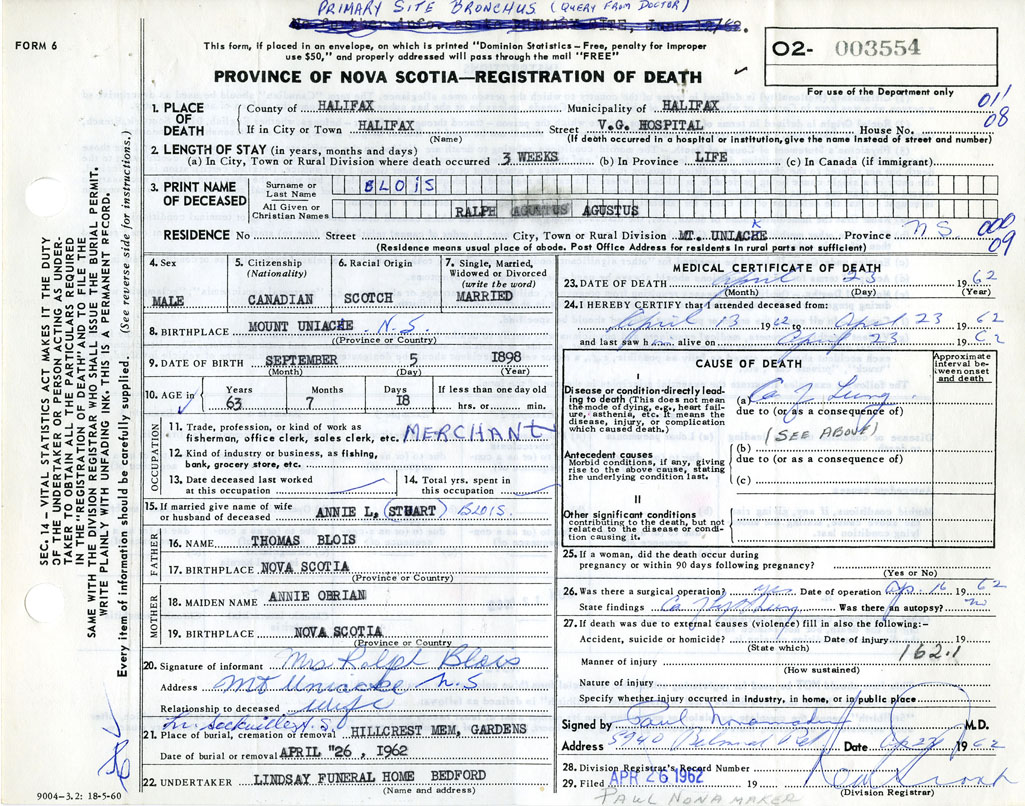 PRIMARY SITE BRONCHUS (QUERY FROM DOCTOR)
FORM 6
This form, if placed in an envelope, on which is printed "Dominion Statistics – Free, penalty for improper
use $50," and properly addressed will pass through the mail "FREE"
PROVINCE OF NOVA SCOTIA—REGISTRATION OF DEATH
O2- 003554
For use of the Department only
011
08
1. PLACE OF DEATH
County of HALIFAX Municipality of HALIFAX
If in City or Town HALIFAX Street V.G. HOSPITAL House No.
(Name) (If death occurred in a hospital or institution, give the name instead of street and number)
2. LENGTH OF STAY (in years, months and days)
(a) In City, Town or Rural Division where death occurred 3 WEEKS (b) In Province LIFE (c) In Canada (if immigrant)
3. PRINT NAME OF DECEASED
Surname or Last Name BLOIS
All Given or Christian Names RALPH AGUSTUS AGUSTUS
RESIDENCE No Street City, Town or Rural Division MT. UNIACKE Province NS
000
09
(Residence means usual place of abode. Post Office Address for residents in rural parts not sufficient)
4. Sex MALE
5. Citizenship (Nationality) CANADIAN
6. Racial Origin SCOTCH
7. Single, Married, Widowed or Divorced (write the word) MARRIED
8. BIRTHPLACE MOUNT UNIACKE N.S.
(Province or Country)
9. DATE OF BIRTH SEPTEMBER 5 1898
(Month) (Day) (Year)
10. AGE in Years 63 Months 7 Days 18 If less than one day old hrs. or min.
OCCUPATION
11. Trade, profession, or kind of work as
fisherman, office clerk, sales clerk, etc. MERCHANT
12. Kind of industry or business, as fishing,
bank, grocery store, etc.
13. Date deceased last worked
at this occupation
14. Total yrs. spent in
this occupation
15. If married give name of wife
or husband of deceased ANNIE L, (STUART) BLOIS.
FATHER
16. NAME THOMAS BLOIS
17. BIRTHPLACE NOVA SCOTIA
(Province or Country)
MOTHER
18. MAIDEN NAME ANNIE OBRIAN
19. BIRTHPLACE NOVA SCOTIA
(Province or Country)
20. Signature of informant Mrs Ralph Blois
Address Mt Uniacke N.S
Relationship to deceased wife
Sackville N.S
21. Place of burial, cremation or removal HILLCREST MEM, GARDENS
Date of burial or removal APRIL "26 , 1962
22. UNDERTAKER LINDSAY FUNERAL HOME BEDFORD
(Name and address)
9004-3.2: 18-5-60
MEDICAL CERTIFICATE OF DEATH
23. DATE OF DEATH April 23 1962
(Month) (Day) (Year)
24. I HEREBY CERTIFY that I attended deceased from:
April 13 1962 to April 23 1962
and last saw him alive on April 23 1962
CAUSE OF DEATH
Approximate interval between onset and death
I
Disease or condition directly leading to death (This does not mean the mode of dying, e.g., heart failure, asthenia, etc. It means the disease, injury, or complication which caused death.)
(a) Ca of Lung
due to (or as a consequence of)
(SEE ABOVE)
Antecedent causes
Morbid conditions, if any, giving rise to the above cause, stating the underlying condition last.
(b)
due to (or as a consequence of)
(c)
II
Other significant conditions
contributing to the death, but not related to the disease or condition causing it.
25. If a woman, did the death occur during
pregnancy or within 90 days following pregnancy?
(Yes or No)
26. Was there a surgical operation? yes Date of operation Ap. 16 1962
State findings Ca Lung Was there an autopsy? no
27. If death was due to external causes (violence) fill in also the following:–
Accident, suicide or homicide? Date of injury 19
(State which)
162.1
Manner of injury
(How sustained)
Nature of injury
Specify whether injury occurred in industry, in home, or in public place
Signed by Paul Nonamaker M.D.
Address 5940 Date Ap 27 1962
28. Division Registrar's Record Number
29. Filed APR 26 1962 19
(Division Registrar)
PAUL NONAMAKER
SEC. 14 – VITAL STATISTICS ACT MAKES IT THE DUTY
OF THE UNDERTAKER OR PERSON ACTING AS UNDER-
TAKER TO OBTAIN ALL THE PARTICULARS REQUIRED
IN THE "REGISTRATION OF DEATH" AND TO FILE THE
SAME WITH THE DIVISION REGISTRAR WHO SHALL ISSUE THE BURIAL PERMIT.
WRITE PLAINLY WITH UNFADING INK. THIS IS A PERMANENT RECORD.
Every item of information should be carefully supplied. (See reverse side for instructions.)